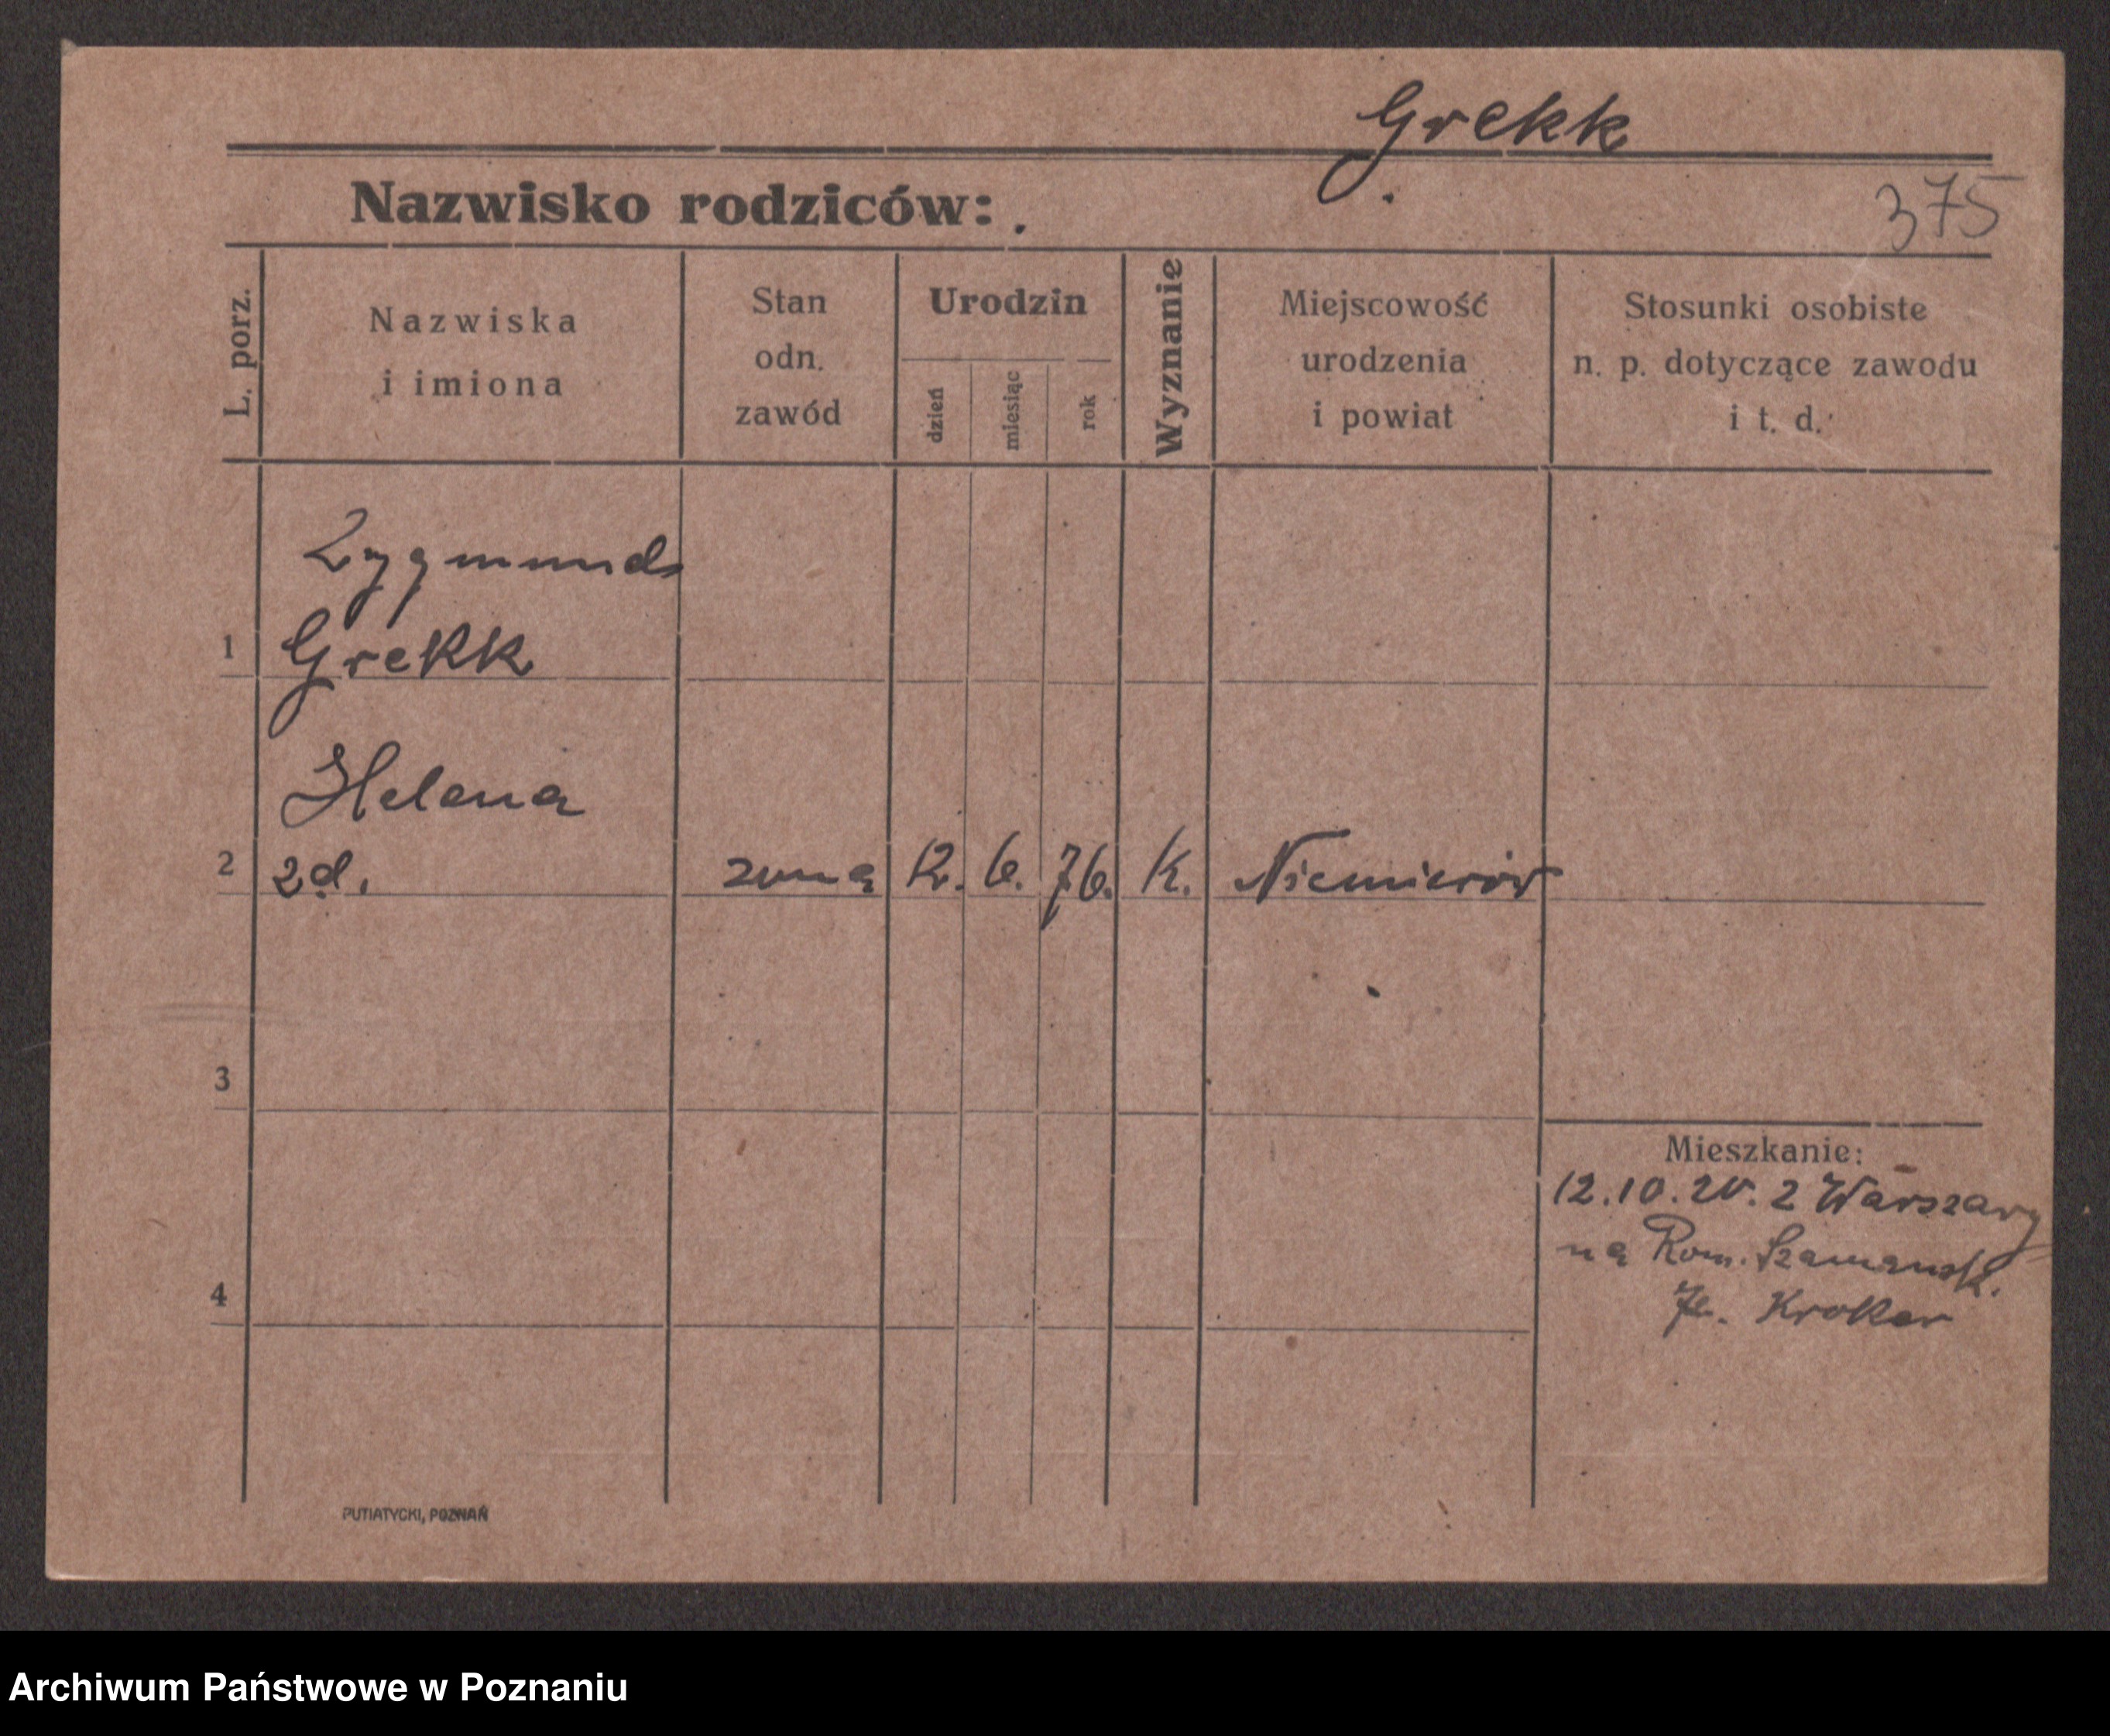 Grekk
Nazwisko rodziców:
375
L. porz.
Nazwiska
i imiona
Stan
odn.
zawód
Urodzin
dzień
miesiąc
rok
Wyznanie
Miejscowość
urodzenia
i powiat
Stosunki osobiste
n. p. dotyczące zawodu
i t. d.
Zygmund
1 Grekk
Helena
2 zd. 12. 6. 76. K. Niemirów
3
Mieszkanie:
12.10.20. z Warszawy
na Rom. Szamansk.
Kroker
4
PUTIATYCKI, POZNAŃ
Archiwum Państwowe w Poznaniu